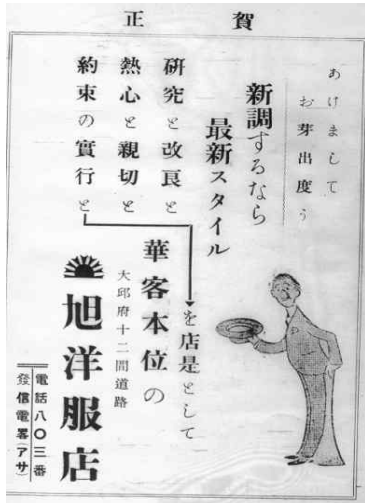 賀正
あけまして
お芽出度う
新調するなら
最新スタイル
研究と改良と
熱心と親切と
約束の實行と
を店是として
華客本位の
大邱府十二間道路
旭洋服店
電話八〇三番
發信電畧(アサ)